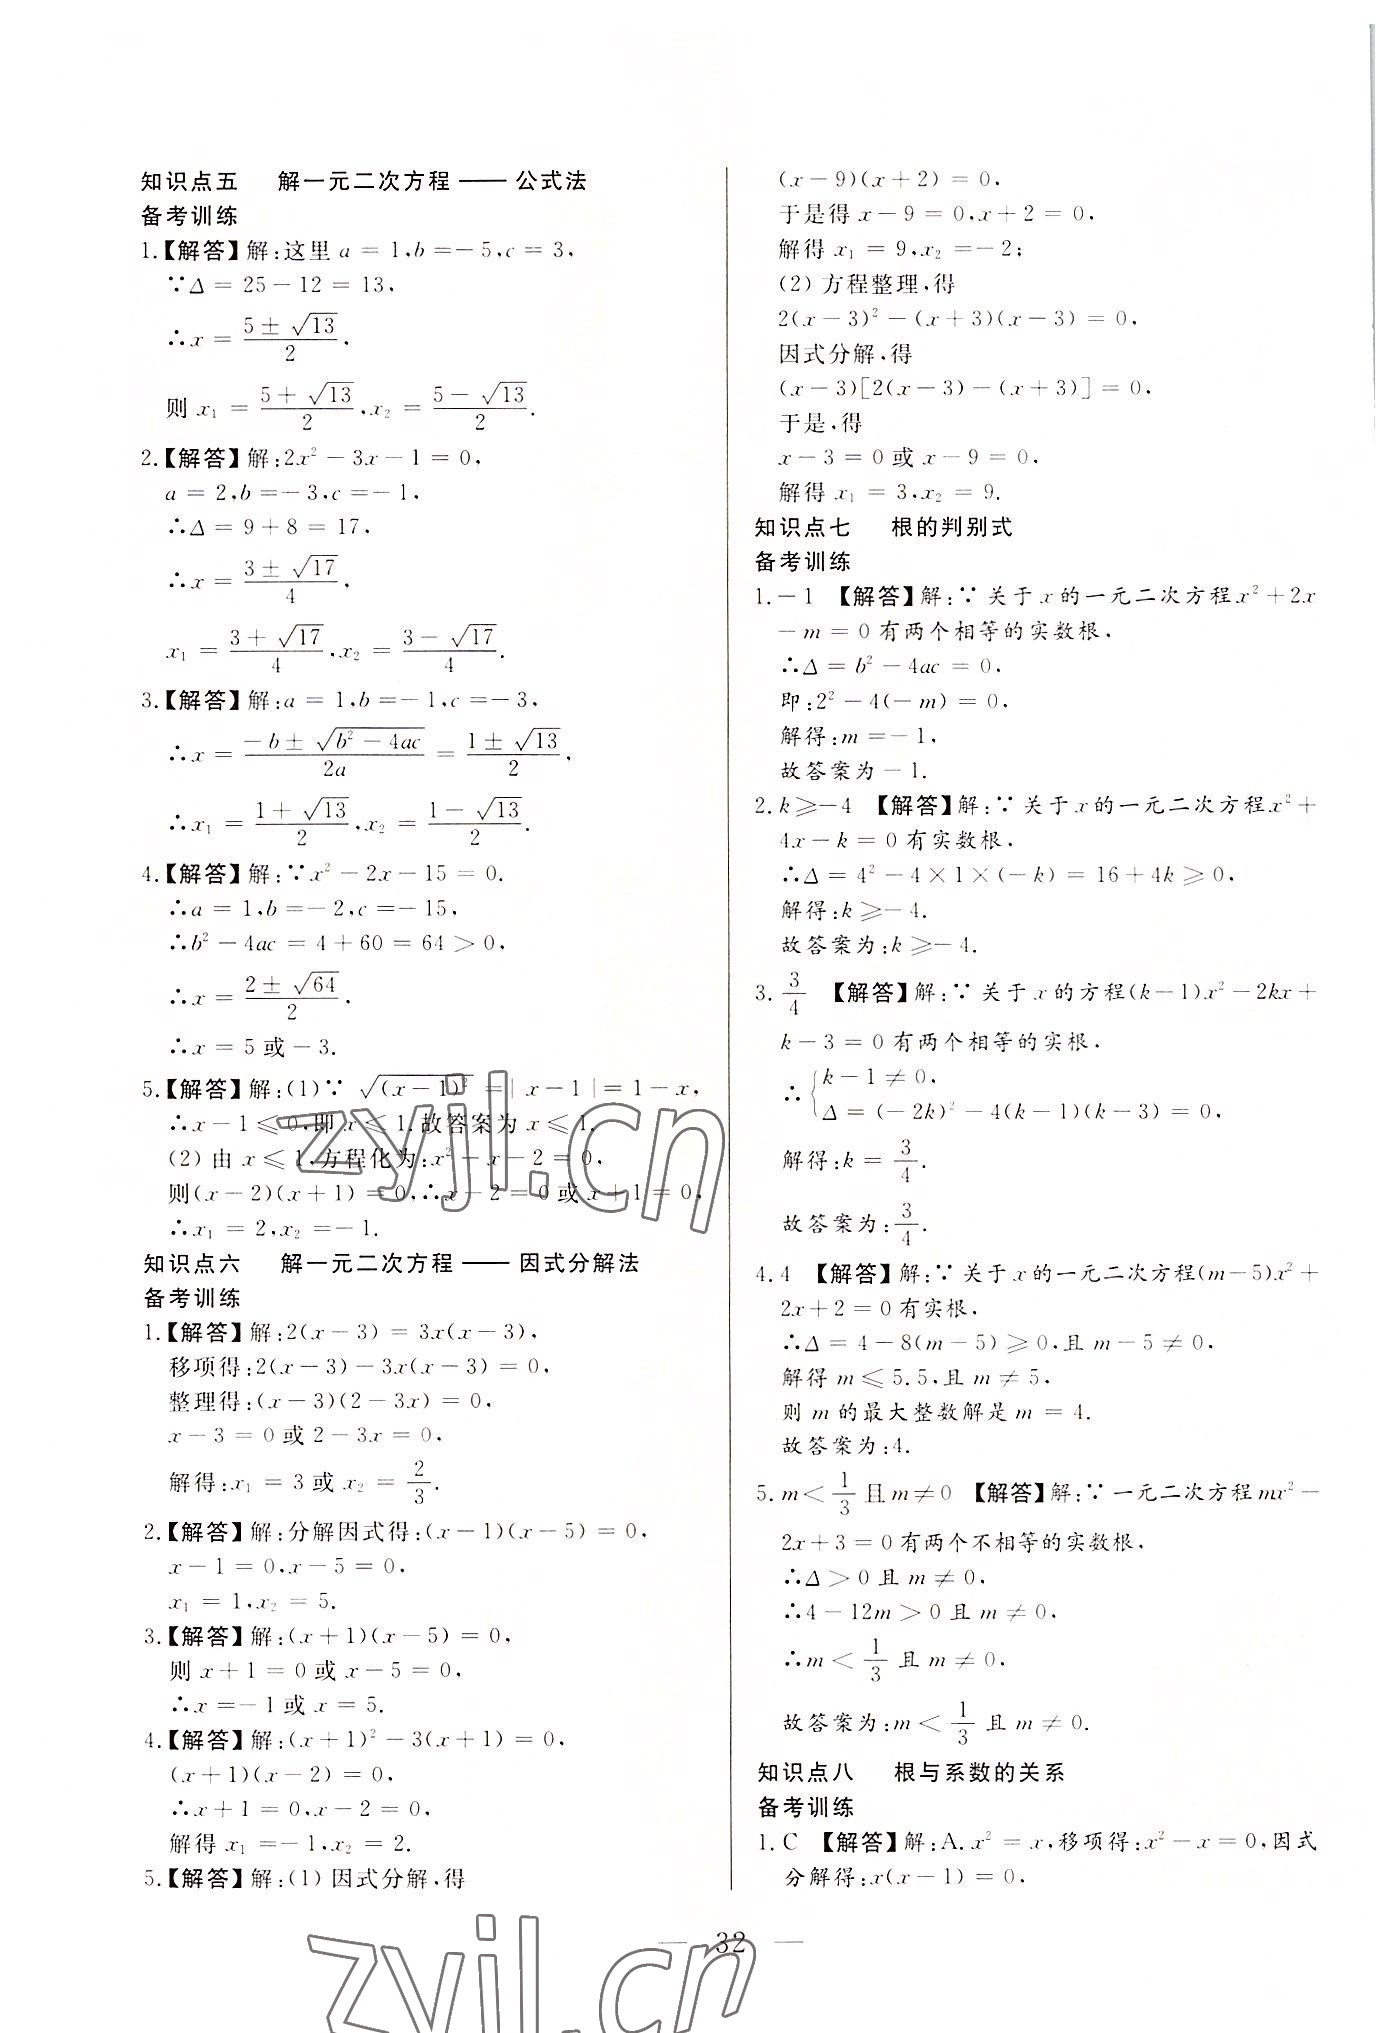 知识点五 解一元二次方程 —— 公式法
备考训练
1.【解答】解:这里 a = 1,b = - 5,c = 3,
∵Δ = 25 - 12 = 13,
∴x = \frac{5 ± \sqrt{13}}{2}.
则 x₁ = \frac{5 + \sqrt{13}}{2},x₂ = \frac{5 - \sqrt{13}}{2}.
2.【解答】解:2x² - 3x - 1 = 0,
a = 2,b = - 3,c = - 1,
∴Δ = 9 + 8 = 17,
∴x = \frac{3 ± \sqrt{17}}{4},
x₁ = \frac{3 + \sqrt{17}}{4},x₂ = \frac{3 - \sqrt{17}}{4}.
3.【解答】解:a = 1,b = - 1,c = - 3,
∴x = \frac{-b ± \sqrt{b² - 4ac}}{2a} = \frac{1 ± \sqrt{13}}{2},
∴x₁ = \frac{1 + \sqrt{13}}{2},x₂ = \frac{1 - \sqrt{13}}{2}.
4.【解答】解:∵x² - 2x - 15 = 0.
∴a = 1,b = - 2,c = - 15,
∴b² - 4ac = 4 + 60 = 64 > 0,
∴x = \frac{2 ± \sqrt{64}}{2}.
∴x = 5 或 - 3.
5.【解答】解:(1)∵ \sqrt{(x - 1)²} = | x - 1 | = 1 - x,
∴x - 1 ⩽ 0,即 x ⩽ 1.故答案为 x ⩽ 1.
(2) 由 x ⩽ 1,方程化为:x² - x - 2 = 0,
则(x - 2)(x + 1) = 0,∴x - 2 = 0 或 x + 1 = 0,
∴x₁ = 2,x₂ = - 1.
知识点六 解一元二次方程 —— 因式分解法
备考训练
1.【解答】解:2(x - 3) = 3x(x - 3),
移项得:2(x - 3) - 3x(x - 3) = 0,
整理得:(x - 3)(2 - 3x) = 0,
x - 3 = 0 或 2 - 3x = 0,
解得:x₁ = 3 或 x₂ = \frac{2}{3}.
2.【解答】解:分解因式得:(x - 1)(x - 5) = 0,
x - 1 = 0,x - 5 = 0,
x₁ = 1,x₂ = 5.
3.【解答】解:(x + 1)(x - 5) = 0,
则 x + 1 = 0 或 x - 5 = 0,
∴x = - 1 或 x = 5.
4.【解答】解:(x + 1)² - 3(x + 1) = 0,
(x + 1)(x - 2) = 0,
∴x + 1 = 0,x - 2 = 0,
解得 x₁ = - 1,x₂ = 2.
5.【解答】解:(1) 因式分解,得
(x - 9)(x + 2) = 0,
于是得 x - 9 = 0,x + 2 = 0,
解得 x₁ = 9,x₂ = - 2;
(2) 方程整理,得
2(x - 3)² - (x + 3)(x - 3) = 0,
因式分解,得
(x - 3)[2(x - 3) - (x + 3)] = 0,
于是,得
x - 3 = 0 或 x - 9 = 0,
解得 x₁ = 3,x₂ = 9.
知识点七 根的判别式
备考训练
1. - 1 【解答】解:∵ 关于 x 的一元二次方程 x² + 2x
- m = 0 有两个相等的实数根,
∴Δ = b² - 4ac = 0,
即:2² - 4(- m) = 0,
解得:m = - 1,
故答案为 - 1.
2. k ⩾ - 4 【解答】解:∵ 关于 x 的一元二次方程 x² +
4x - k = 0 有实数根,
∴Δ = 4² - 4 × 1 × (- k) = 16 + 4k ⩾ 0,
解得:k ⩾ - 4.
故答案为:k ⩾ - 4.
3. \frac{3}{4} 【解答】解:∵ 关于 x 的方程(k - 1)x² - 2kx +
k - 3 = 0 有两个相等的实根,
∴{k - 1 ≠ 0,
Δ = (- 2k)² - 4(k - 1)(k - 3) = 0,
解得:k = \frac{3}{4}.
故答案为:\frac{3}{4}.
4. 4 【解答】解:∵ 关于 x 的一元二次方程(m - 5)x² +
2x + 2 = 0 有实根,
∴Δ = 4 - 8(m - 5) ⩾ 0,且 m - 5 ≠ 0,
解得 m ⩽ 5.5,且 m ≠ 5,
则 m 的最大整数解是 m = 4.
故答案为:4.
5. m < \frac{1}{3} 且 m ≠ 0 【解答】解:∵ 一元二次方程 mx² -
2x + 3 = 0 有两个不相等的实数根,
∴Δ > 0 且 m ≠ 0,
∴4 - 12m > 0 且 m ≠ 0,
∴m < \frac{1}{3} 且 m ≠ 0,
故答案为:m < \frac{1}{3} 且 m ≠ 0.
知识点八 根与系数的关系
备考训练
1. C 【解答】解:A. x² = x,移项得:x² - x = 0,因式
分解得:x(x - 1) = 0,
— 32 —
zyjl.cn
zyjl.cn